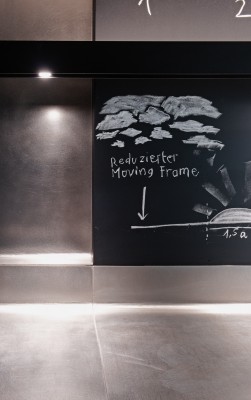 1 2
Reduzierter
Moving Frame
1,5a